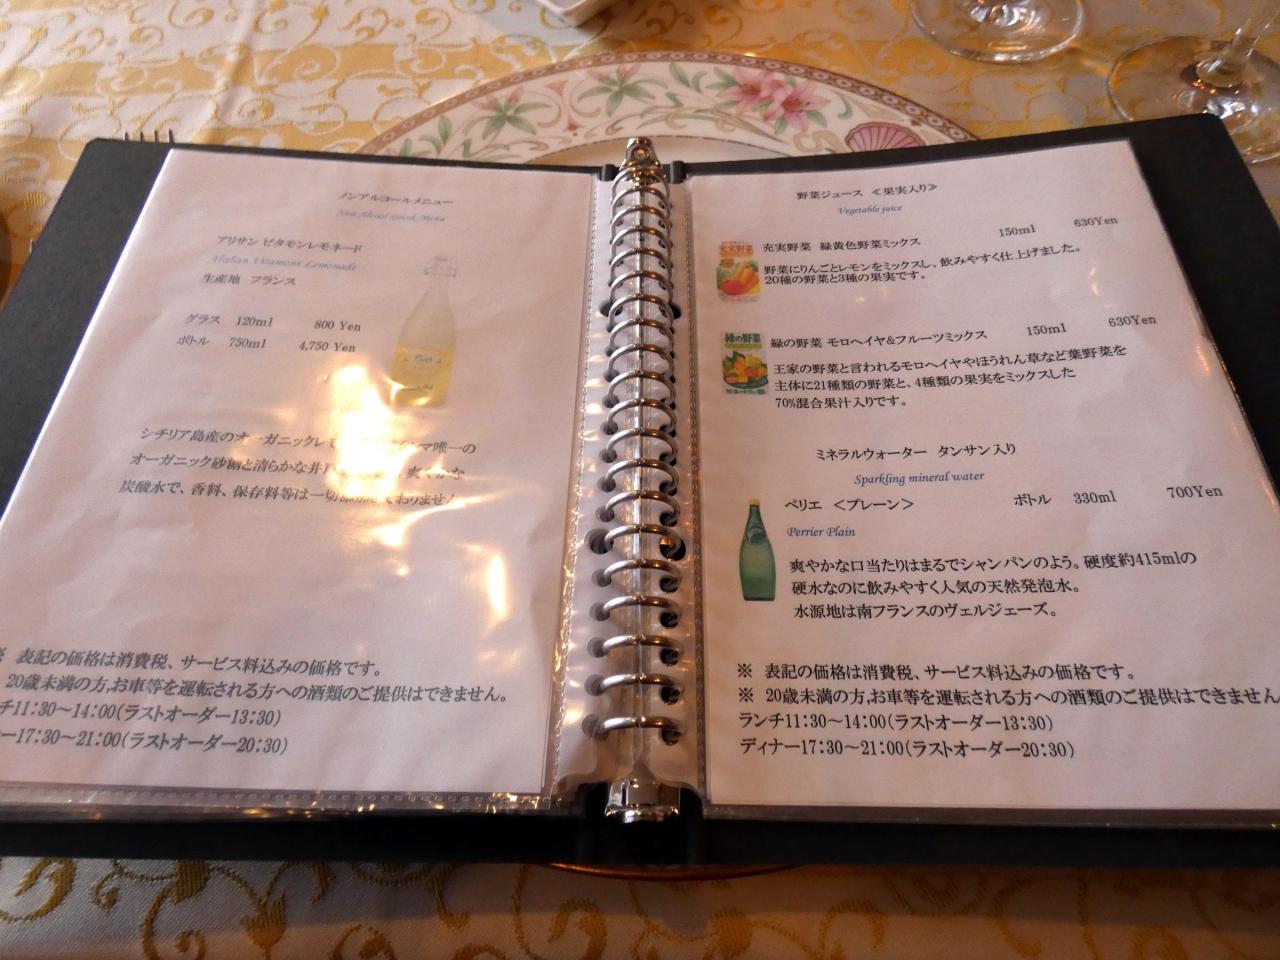 ノンアルコールメニュー
Non Alcohol Drink Menu
アリサン ビタモンレモネード
Alishan Vitamont Lemonade
生産地 フランス
グラス 120ml 800 Yen
ボトル 750ml 4,750 Yen
シチリア島産のオーガニックレモ 唯一の
オーガニック砂糖と清らかな井戸 爽やかな
炭酸水で、香料、保存料等は一切 ておりません
※ 表記の価格は消費税、サービス料込みの価格です。
20歳未満の方,お車等を運転される方への酒類のご提供はできません。
チ11:30～14:00(ラストオーダー13:30)
ー17:30～21:00(ラストオーダー20:30)
野菜ジュース ≪果実入り≫
Vegetable juice
充実野菜 緑黄色野菜ミックス 150ml 630Yen
野菜にりんごとレモンをミックスし、飲みやすく仕上げました。
20種の野菜と3種の果実です。
充実野菜
緑の野菜 モロヘイヤ&フルーツミックス 150ml 630Yen
王家の野菜と言われるモロヘイヤやほうれん草など葉野菜を
主体に21種類の野菜と、4種類の果実をミックスした
70%混合果汁入りです。
緑の野菜
ミネラルウォーター タンサン入り
Sparkling mineral water
ペリエ ＜プレーン＞ ボトル 330ml 700Yen
Perrier Plain
爽やかな口当たりはまるでシャンパンのよう。硬度約415mlの
硬水なのに飲みやすく人気の天然発泡水。
水源地は南フランスのヴェルジェーズ。
※ 表記の価格は消費税、サービス料込みの価格です。
※ 20歳未満の方,お車等を運転される方への酒類のご提供はできません
ランチ11:30～14:00(ラストオーダー13:30)
ディナー17:30～21:00(ラストオーダー20:30)